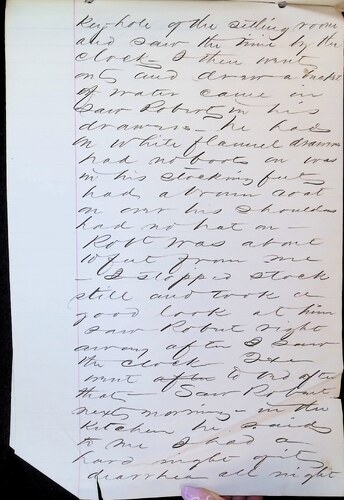 Key-hole of the sitting room
and saw the time by the
clock - I then went
out and drew a bucket
of water came in
saw Robert in his
drawers - he had
on white flannel drawers
had no boots on was
in his stocking feet
had a brown coat
on over his shoulders
had no hat on -
Robt was about
10 feet from me
- I stopped stock
still and took a
good look at him
saw Robert right
away after I saw
the clock
went after to bed after
that - Saw Robert
next morning - in the
Kitchen he said
to me I had a
hard night got
diarrhea all night